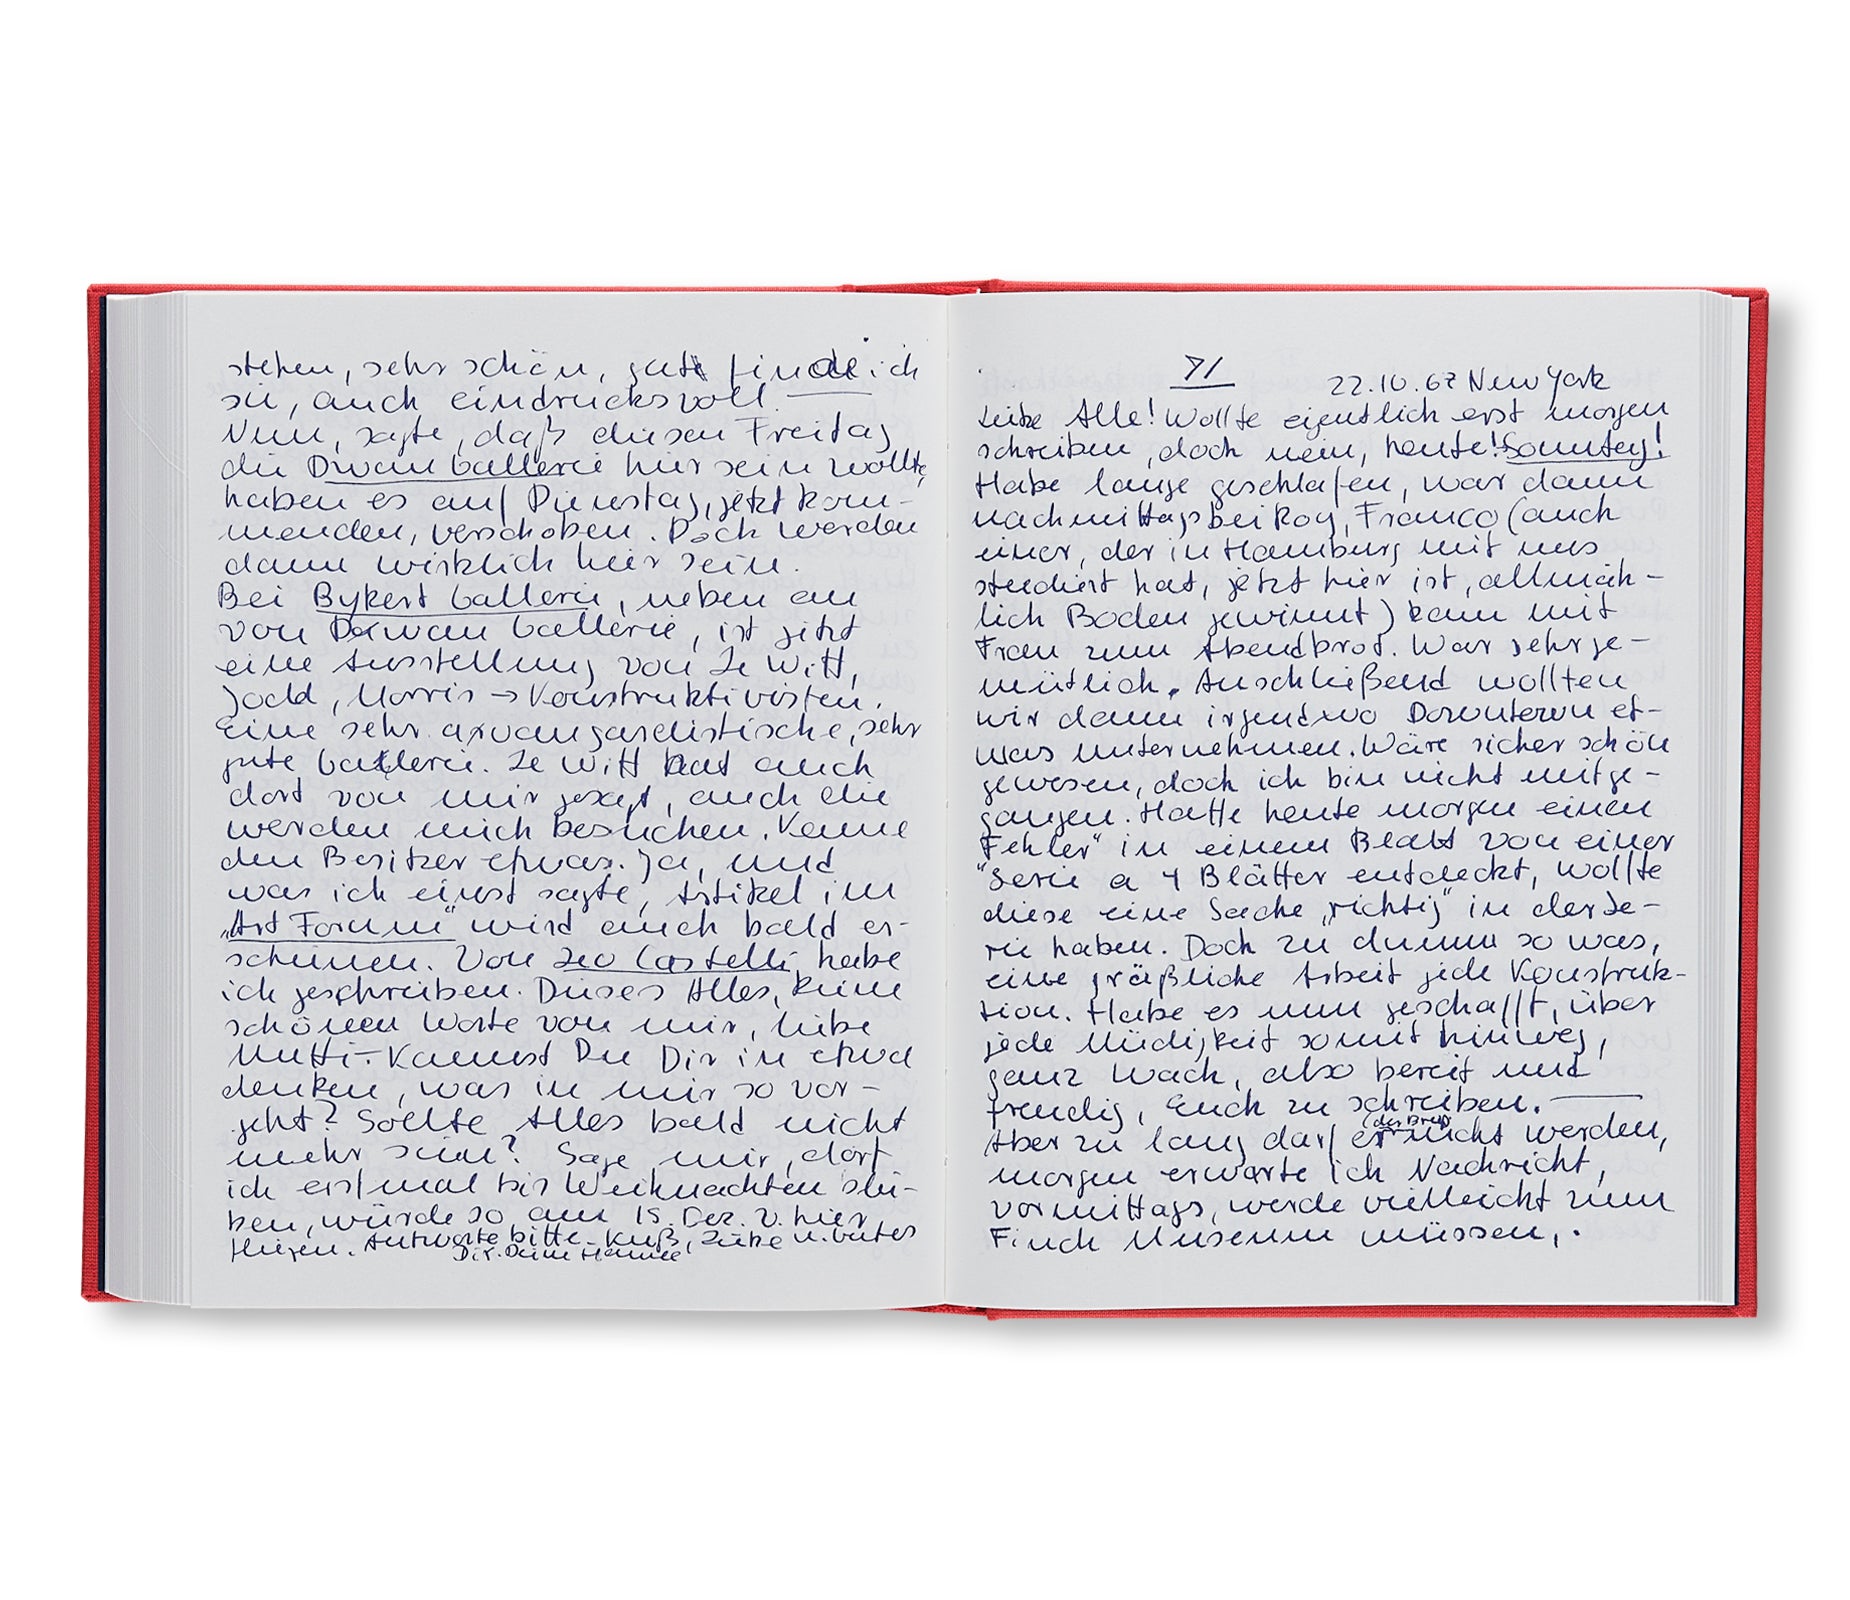 stehen, sehr schön, gut finde ich
sie, auch eindrucksvoll. —
Nun, sagte, daß diesen Freitag
die Dwan Gallerie hier sein wollte,
haben es auf Dienstag, jetzt kom-
menden, verschoben. Doch werden
dann wirklich hier sein.
Bei Bykert Gallerie, neben an
von Dwan Gallerie, ist jetzt
eine Ausstellung von Le Witt,
Jodd, Morris → Konstruktivisten.
Eine sehr avangardistische, sehr
gute Gallerie. Le Witt hat auch
dort von mir gesagt, auch die
werden mich besuchen. Kenne
den Besitzer etwas. Ja, und
was ich einst sagte, Artikel im
„Art Forum" wird auch bald er-
scheinen. Von Leo Castelli habe
ich geschrieben. Dieses Alles, keine
schönen Worte von mir, liebe
Mutti – Kannst Du Dir in etwa
denken, was in mir so vor-
geht? Sollte Alles bald nicht
mehr sein? Sage mir, dorf
ich erstmal bis Weihnachten blei-
ben, würde so am 15. Dez. v. hier
fliegen. Antworte bitte – Kuß, Liebe u. Gutes
Dir. Deine Hanne
71
22.10.67 New York
Liebe Alle! Wollte eigentlich erst morgen
schreiben, doch nein, heute! Sonntag!
Habe lange geschlafen, war dann
nachmittags bei Roy, Franco (auch
einer, der in Hamburg mit uns
studiert hat, jetzt hier ist, allmäh-
lich Boden gewinnt) kam mit
Frau zum Abendbrot. War sehr ge-
mütlich. Anschließend wollten
wir dann irgendwo Downtown et-
was unternehmen. Wäre sicher schön
gewesen, doch ich bin nicht mitge-
gangen. Hatte heute morgen einen
„Fehler" in einem Blatt von einer
"Serie a 4 Blätter entdeckt, wollte
diese eine Sache „richtig" in der Se-
rie haben. Doch zu dumm so was,
eine gräßliche Arbeit jede Konstruk-
tion. Habe es nun geschafft, über
jede Müdigkeit somit hinweg,
ganz wach, also bereit und
freudig, Euch zu schreiben. —
(der Brief)
Aber zu lang darf er nicht werden,
morgen erwarte ich Nachricht,
vormittags, werde vielleicht zum
Finch Museum müssen, .